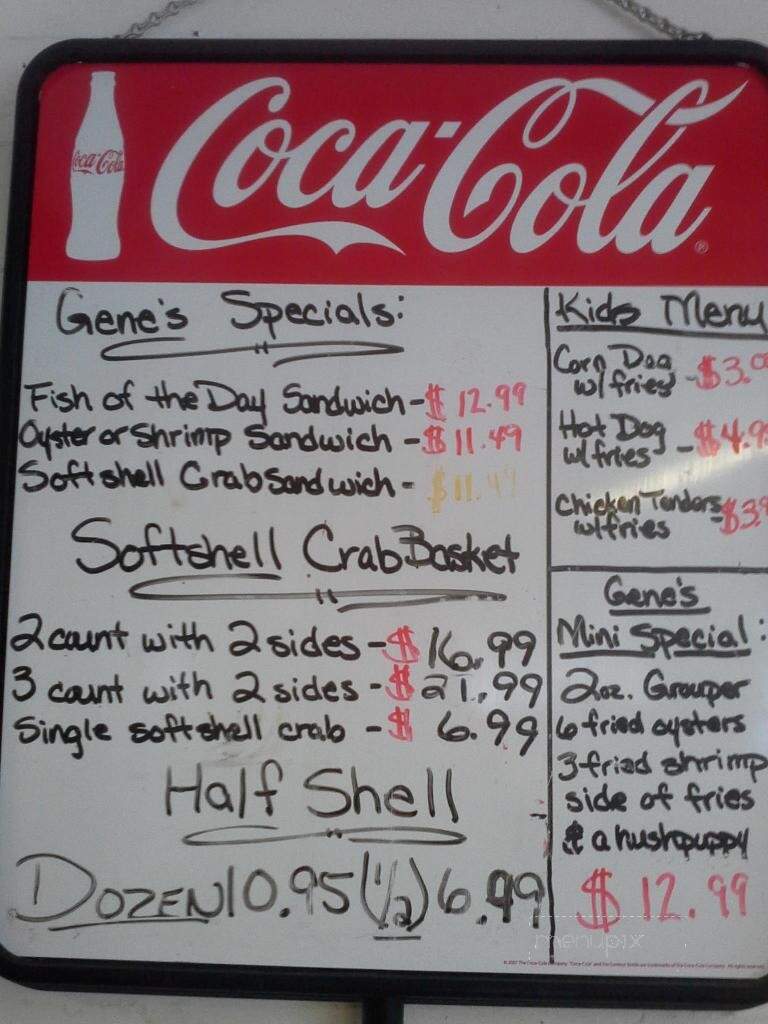 Coca-Cola
Coca-Cola ®
Gene's Specials:
Fish of the Day Sandwich - $ 12.99
Oyster or Shrimp Sandwich - $ 11.49
Softshell Crab Sandwich - $ 11.49
Softshell Crab Basket
2 count with 2 sides - $ 16.99
3 count with 2 sides - $ 21.99
Single softshell crab - $ 6.99
Half Shell
DOZEN 10.95 (1/2) 6.99
Kids Menu
Corn Dog
w/fries - $3.0
Hot Dog
w/fries - $4.9
Chicken Tenders
w/fries - $3.9
Gene's
Mini Special:
2oz. Grouper
6 fried oysters
3 fried shrimp
side of fries
& a hushpuppy
$ 12.99
menupix